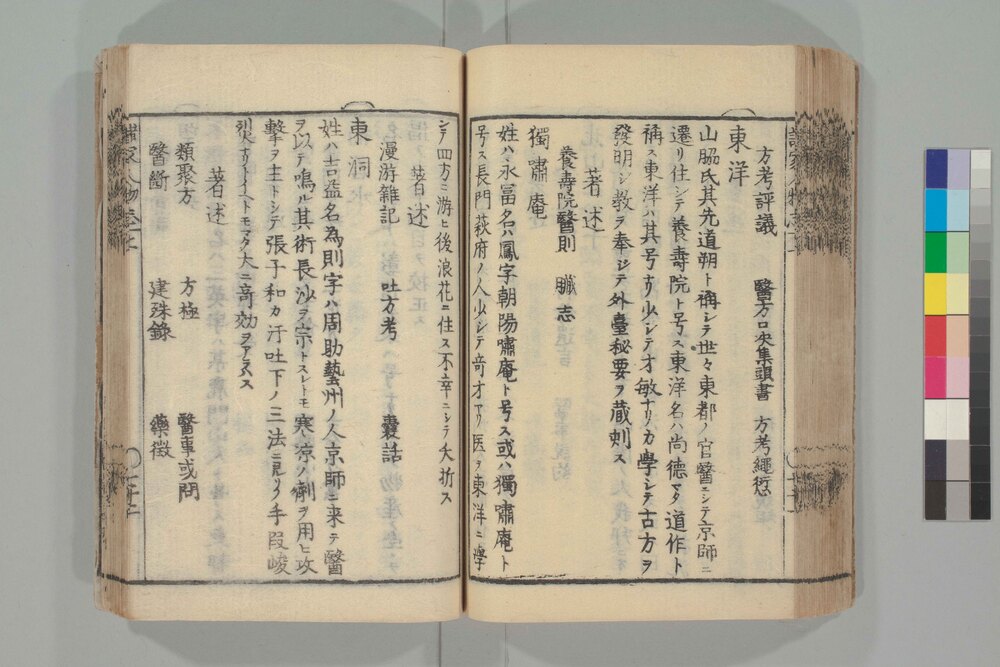 方考評議 醫方口訣集頭書 方考繩愆
東洋
山脇氏其先道朔ト稱シテ世々東都ノ官醫ニシテ京師ニ
遷リ住シテ養壽院ト号ス東洋名ハ尚德マタ道作ト
稱ス東洋ハ其号ナリ少シテ才敏ナリ力學シテ古方ヲ
發明シ教ヲ奉ジテ外臺秘要ヲ藏刻ス
著述
養壽院醫則 臓志
獨嘯庵
姓ハ永冨名ハ鳳字朝陽嘯庵ト号ス或ハ獨嘯庵ト
号ス長門萩府ノ人少シテ竒才アリ医ヲ東洋ニ學
シテ四方ニ游ヒ後浪花ニ住ス不幸ニシテ夭折ス
著述
漫游雜記 吐方考 囊語
東洞
姓ハ吉益名為則字ハ周助藝州ノ人京師ニ来テ醫
ヲ以テ鳴ル其術長沙ヲ宗トスレトモ寒凉ノ劑ヲ用ヒ攻
擊ヲ主トシテ張子和カ汗吐下ノ三法ニ見リ手段峻
烈ナリトイヘトモマタ大ニ竒効ヲアラハス
著述
類聚方 方極 醫事或問
醫斷 建殊錄 藥徴
諸家人物志上